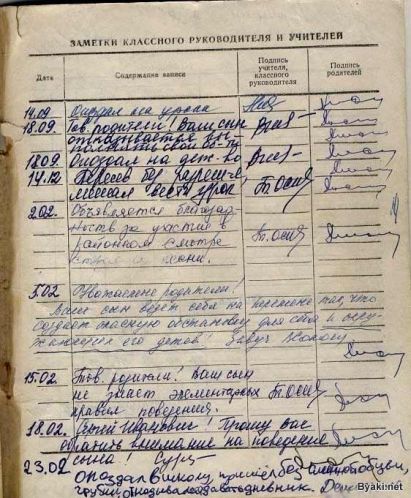 ЗАМЕТКИ КЛАССНОГО РУКОВОДИТЕЛЯ И УЧИТЕЛЕЙ
Дата Содержание записи Подпись учителя, классного руководителя Подпись родителей
14.09 Опоздал на уроки
18.09. Тов. родители! Ваш сын
отказывается вы-
18.09. Опоздал на
14.12 Пересел без разреше-я,
мешал вести урок
2.02. Объявляется благодар-
ность за участие в
районном смотре
строя и песни.
5.02 Уважаемые родители!
Ваш сын ведет себя на перемене так, что
создает опасную обстановку для себя и окру-
жающих его детей! Завуч
15.02. Тов. родители! Ваш сын
не знает элементарных
правил поведения.
18.02. Иванович! Прошу вас
обратить внимание на поведение
сына
23.02 Опоздал в школу, пришел без обуви,
грубил, дневник.
Byaki.net